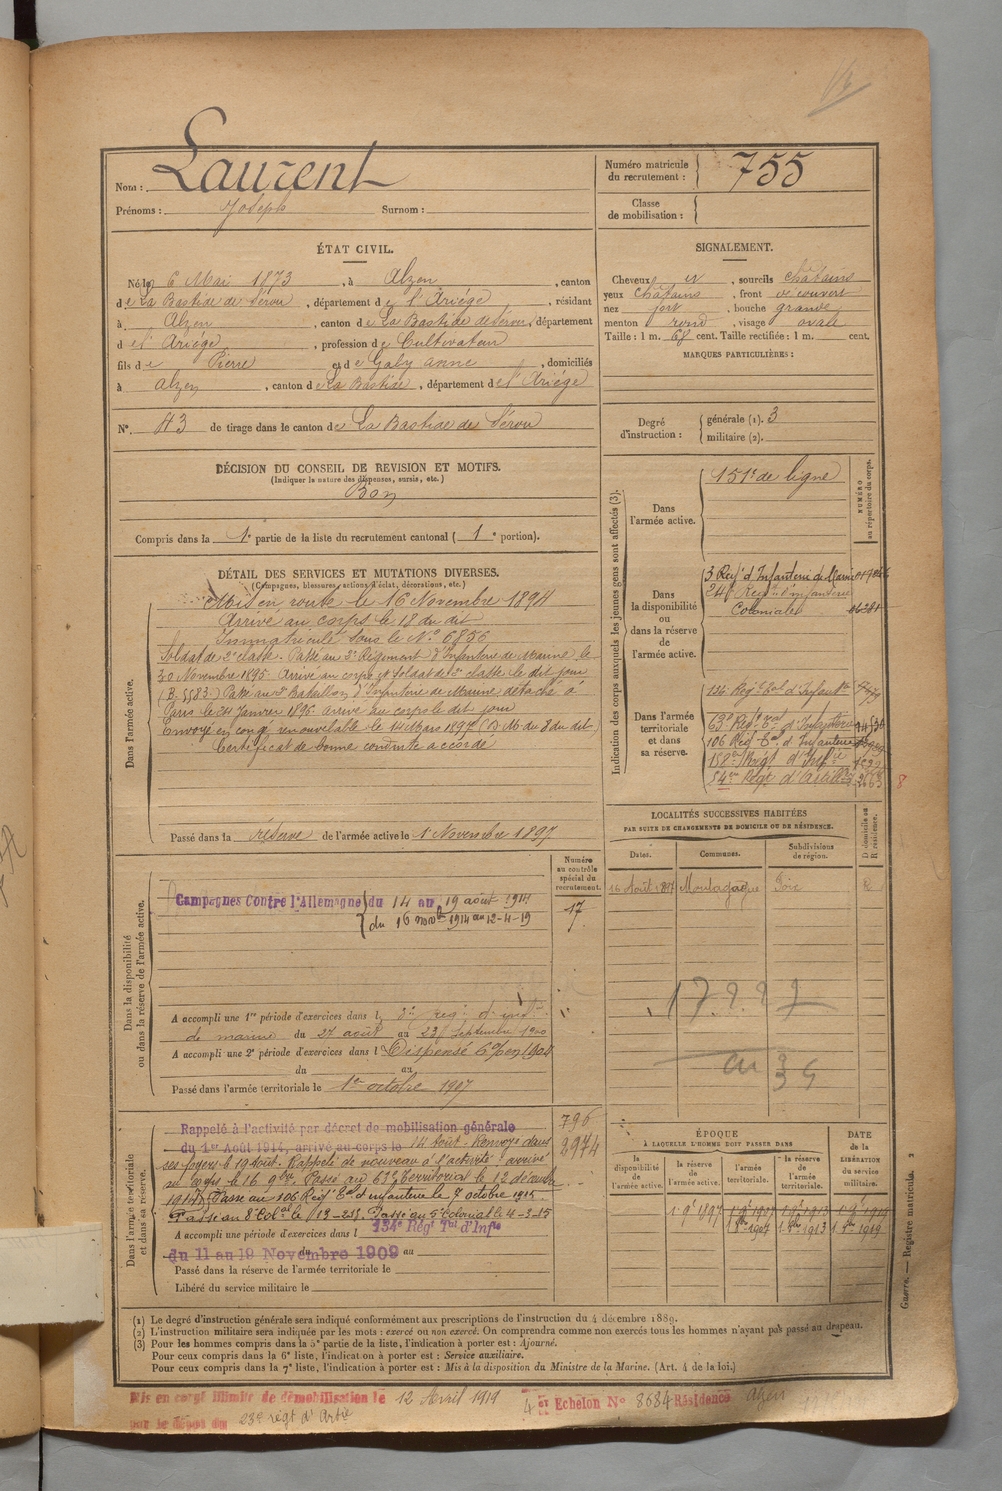 Laurent
Nom :
Prénoms : Joseph Surnom :
Numéro matricule du recrutement : 755
Classe de mobilisation :
ÉTAT CIVIL.
Né le 6 Mai 1873, à Alzen, canton
de La Bastide de Sérou, département de l'Ariége, résidant
à Alzen, canton de La Bastide de Sérou, département
d el' Ariége, profession de Cultivateur
fils de Pierre et de Galy anne, domiciliés
à Alzen, canton de La Bastide, département de l'Ariége
N° 43 de tirage dans le canton de La Bastide de Sérou
SIGNALEMENT.
Cheveux, sourcils châtains
yeux châtains, front découvert
nez fort, bouche grande
menton rond, visage ovale
Taille : 1 m. 68 cent. Taille rectifiée : 1 m. cent.
MARQUES PARTICULIÈRES :
Degré d'instruction : générale (1). 3
militaire (2).
DÉCISION DU CONSEIL DE REVISION ET MOTIFS.
(Indiquer la nature des dispenses, sursis, etc.)
Bon
Compris dans la 1e partie de la liste du recrutement cantonal (1e portion).
DÉTAIL DES SERVICES ET MUTATIONS DIVERSES.
(Campagnes, blessures, actions d'éclat, décorations, etc.)
Dans l'armée active.
Mis en route le 16 Novembre 1894
Arrivé au corps le 18 du dit
Immatriculé sous le N° 6856
Soldat de 2e classe. Passé au 3e Régiment d'Infanterie de Marine le
30 Novembre 1895. Arrivé au corps et Soldat de 2e classe le dit jour
(B. 5583) Passé au Bataillon d'Infanterie de Marine détaché à
Paris le 24 Janvier 1896. arrivé au corps le dit jour
Envoyé en congé renouvelable le 14 Mars 1897 (D.M. du 8 du dit)
Certificat de bonne conduite accordé
Passé dans la réserve de l'armée active le 1 Novembre 1897
Indication des corps auxquels les jeunes gens sont affectés (3).
NUMÉRO au répertoire du corps.
Dans l'armée active.
151e de ligne
Dans la disponibilité ou dans la réserve de l'armée active.
3 Regt d'Infanterie de Marine
24e Regt d'infanterie
Coloniale
Dans l'armée territoriale et dans sa réserve.
134 Regt Tal d'Infanterie
63e Regt Tal d'Infanterie
106 Reg Tal d'Infanterie
158e Regt d'Infie
54e Regt d'Artillie
LOCALITÉS SUCCESSIVES HABITÉES
PAR SUITE DE CHANGEMENTS DE DOMICILE OU DE RÉSIDENCE.
Dates. Communes. Subdivisions de région. D domicile ou R résidence.
16 Août 1897 Montagagne Foix R
Dans la disponibilité ou dans la réserve de l'armée active.
Numéro au contrôle spécial du recrutement.
Campagnes Contre l'Allemagne du 14 au 19 août 1914
du 16 novbre 1914 au 12-4-19
17
A accompli une 1re période d'exercices dans l 8e reg. d'infie
de marine du 27 août au 23 septembre 1900
A accompli une 2e période d'exercices dans l Dispensé 1904
du au
Passé dans l'armée territoriale le 1er octobre 1907
au 34
Dans l'armée territoriale et dans sa réserve.
796
2974
Rappelé à l'activité par décret de mobilisation générale
du 1er Août 1914, arrivé au corps le 14 Août. Renvoyé dans
ses foyers le 19 Août. Rappelé de nouveau à l'activité arrivé
au corps le 16 9bre. Passé au 63e Territorial le 12 décembre
1914. Passé au 106 Regt Tal d'infanterie le 7 octobre 1915
Passe au 8e Colal le 13-2-15. Passe au 5e Colonial le 4-3-15
A accompli une période d'exercices dans l 134e Régt Tal d'Infie
du 11 au 19 Novembre 1909 au
Passé dans la réserve de l'armée territoriale le
Libéré du service militaire le
ÉPOQUE
À LAQUELLE L'HOMME DOIT PASSER DANS
la disponibilité de l'armée active. la réserve de l'armée active. l'armée territoriale. la réserve de l'armée territoriale.
DATE de la LIBÉRATION du service militaire.
1 9e 1897 1 9e 1907 1 9e 1913 1 9e 1919
1 8bre 1907 1 8bre 1913 1 8bre 1919
Guerre. — Registre matricule. 2
(1) Le degré d'instruction générale sera indiqué conformément aux prescriptions de l'instruction du 4 décembre 1889.
(2) L'instruction militaire sera indiquée par les mots : exercé ou non exercé. On comprendra comme non exercés tous les hommes n'ayant pas passé au drapeau.
(3) Pour les hommes compris dans la 5e partie de la liste, l'indication à porter est : Ajourné.
Pour ceux compris dans la 6e liste, l'indication à porter est : Service auxiliaire.
Pour ceux compris dans la 7e liste, l'indication à porter est : Mis à la disposition du Ministre de la Marine. (Art. 4 de la loi.)
Mis en congé illimité de démobilisation le 12 Avril 1919 4e Echelon N° 8684 Résidence Alzen
par le dépôt du 23e régt d'Artie